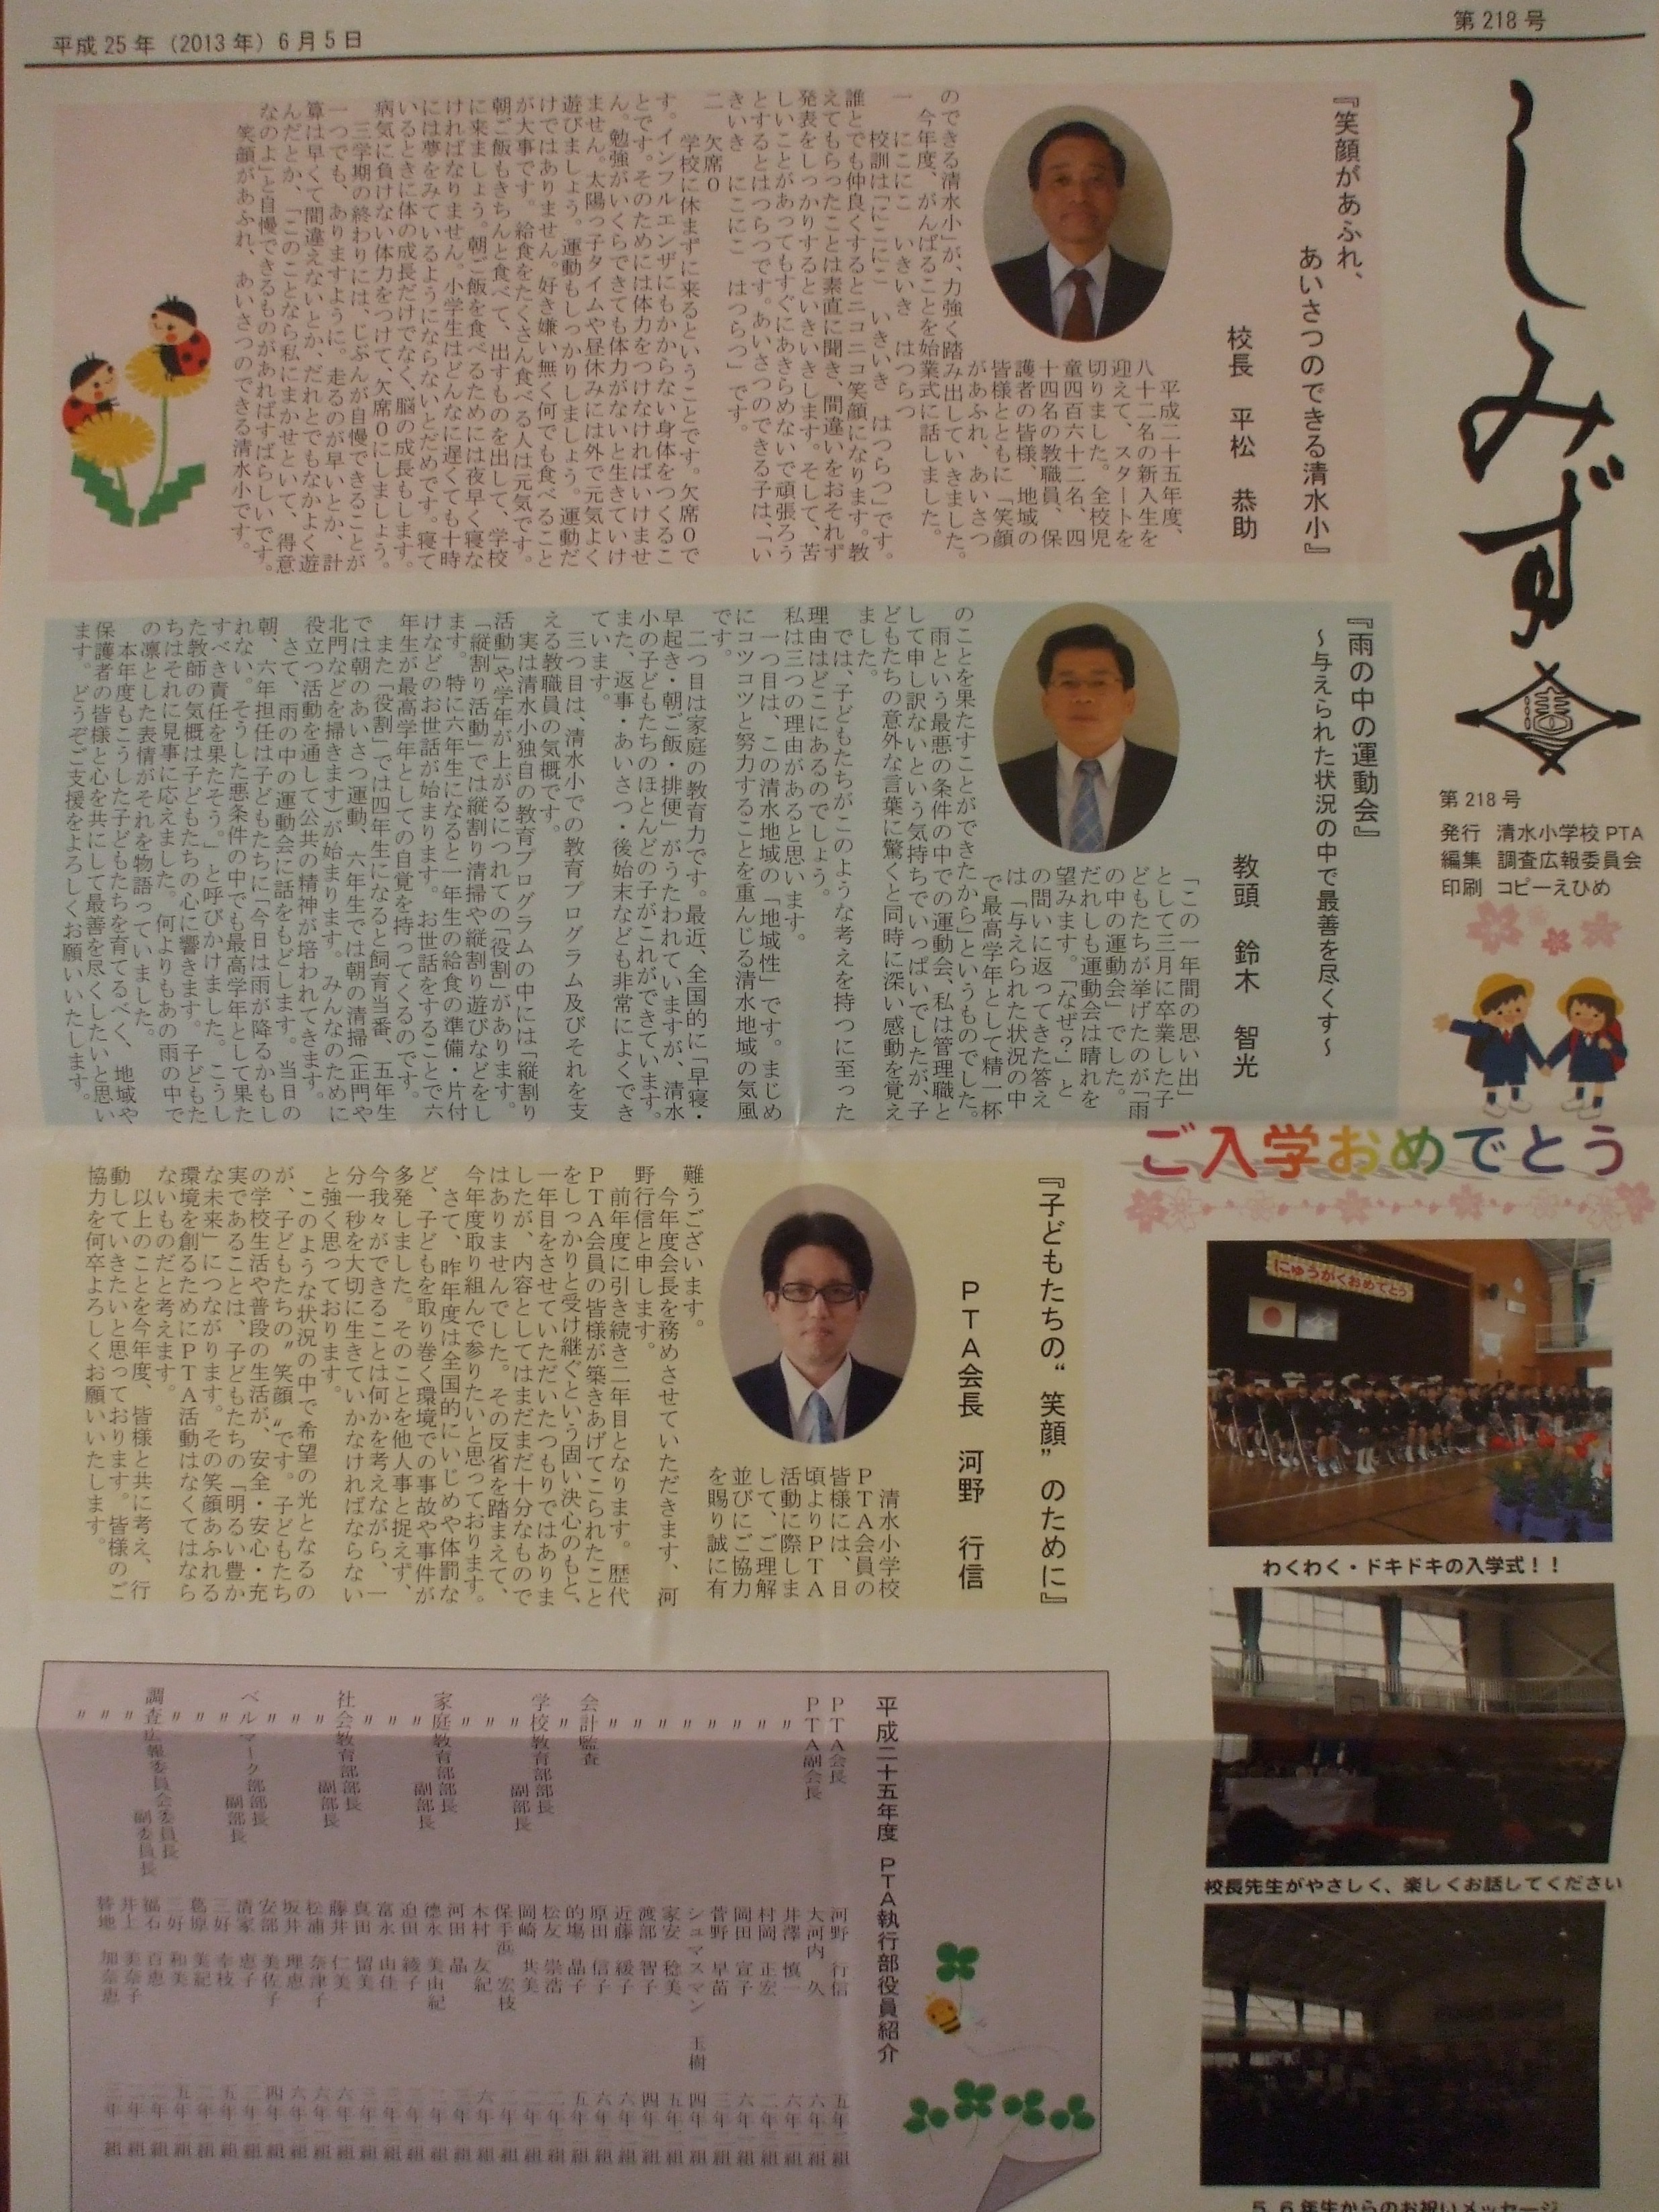 平成25年(2013年)6月5日
第218号
しみず
第218号
発行 清水小学校PTA
編集 調査広報委員会
印刷 コピーえひめ
ご入学おめでとう
にゅうがくおめでとう
わくわく・ドキドキの入学式!!
校長先生がやさしく、楽しくお話してください
5,6年生からのお祝いメッセージ
『笑顔があふれ、
あいさつのできる清水小』
校長 平松 恭助
平成二十五年度、
八十二名の新入生を
迎えて、スタートを
切りました。全校児
童四百六十二名、四
十四名の教職員、保
護者の皆様、地域の
皆様とともに「笑顔
があふれ、あいさつ
のできる清水小」が、力強く踏み出していきました。
今年度、がんばることを始業式に話しました。
一 にこにこ いきいき はつらつ
校訓は「にこにこ いきいき はつらつ」です。
誰とでも仲良くするとニコニコ笑顔になります。教
えてもらったことは素直に聞き、間違いをおそれず
発表をしっかりするといきいきします。そして、苦
しいことがあってもすぐにあきらめないで頑張ろう
とするとはつらつです。あいさつのできる子は、「い
きいき にこにこ はつらつ」です。
二 欠席0
学校に休まずに来るということです。欠席0で
す。インフルエンザにもかからない身体をつくるこ
とです。そのためには体力をつけなければいけませ
ん。勉強がいくらできても体力がないと生きていけ
ません。太陽っ子タイムや昼休みには外で元気よく
遊びましょう。運動もしっかりしましょう。運動だ
けではありません。好き嫌い無く何でも食べること
が大事です。給食をたくさん食べる人は元気です。
朝ご飯もきちんと食べて、出すものを出して、学校
に来ましょう。朝ご飯を食べるためには夜早く寝な
ければなりません。小学生はどんなに遅くても十時
には夢をみているようにならないとだめです。寝て
いるときに体の成長だけでなく、脳の成長もします。
病気に負けない体力をつけて、欠席0にしましょう。
三学期の終わりには、じぶんが自慢できることが
一つでも、ありますように。走るのが早いとか、計
算は早くて間違えないとか、だれとでもなかよく遊
んだとか、「このことなら私にまかせといて、得意
なのよ」と自慢できるものがあればすばらしいです。
笑顔があふれ、あいさつのできる清水小です。
『雨の中の運動会』
~与えられた状況の中で最善を尽くす~
教頭 鈴木 智光
「この一年間の思い出」
として三月に卒業した子
どもたちが挙げたのが「雨
の中の運動会」でした。
だれしも運動会は晴れを
望みます。「なぜ?」と
の問いに返ってきた答え
は「与えられた状況の中
で最高学年として精一杯
のことを果たすことができたから」というものでした。
雨という最悪の条件の中での運動会、私は管理職と
して申し訳ないという気持ちでいっぱいでしたが、子
どもたちの意外な言葉に驚くと同時に深い感動を覚え
ました。
では、子どもたちがこのような考えを持つに至った
理由はどこにあるのでしょう。
私は三つの理由があると思います。
一つ目は、この清水地域の「地域性」です。まじめ
にコツコツと努力することを重んじる清水地域の気風
です。
二つ目は家庭の教育力です。最近、全国的に「早寝・
早起き・朝ご飯・排便」がうたわれていますが、清水
小の子どもたちのほとんどの子がこれができています。
また、返事・あいさつ・後始末なども非常によくでき
ています。
三つ目は、清水小での教育プログラム及びそれを支
える教職員の気概です。
実は清水小独自の教育プログラムの中には「縦割り
活動」や学年が上がるにつれての「役割」があります。
「縦割り活動」では縦割り清掃や縦割り遊びなどをし
ます。特に六年生になると一年生の給食の準備・片付
けなどのお世話が始まります。お世話をすることで六
年生が最高学年としての自覚を持ってくるのです。
また「役割」では四年生になると飼育当番、五年生
では朝のあいさつ運動、六年生では朝の清掃(正門や
北門などを掃きます)が始まります。みんなのために
役立つ活動を通して公共の精神が培われてきます。
さて、雨の中の運動会に話をもどします。当日の
朝、六年担任は子どもたちに「今日は雨が降るかもし
れない。そうした悪条件の中でも最高学年として果た
すべき責任を果たそう。」と呼びかけました。こうし
た教師の気概は子どもたちの心に響きます。子どもた
ちはそれに見事に応えました。何よりもあの雨の中で
の凛とした表情がそれを物語っていました。
本年度もこうした子どもたちを育てるべく、地域や
保護者の皆様と心を共にして最善を尽くしたいと思い
ます。どうぞご支援をよろしくお願いいたします。
『子どもたちの“笑顔”のために』
PTA会長 河野 行信
清水小学校
PTA会員の
皆様には、日
頃よりPTA
活動に際しま
して、ご理解
並びにご協力
を賜り誠に有
難うございます。
今年度会長を務めさせていただきます、河
野行信と申します。
前年度に引き続き二年目となります。歴代
PTA会員の皆様が築きあげてこられたこと
をしっかりと受け継ぐという固い決心のもと、
一年目をさせていただいたつもりではありま
したが、内容としてはまだまだ十分なもので
はありませんでした。その反省を踏まえて、
今年度取り組んで参りたいと思っております。
さて、昨年度は全国的にいじめや体罰な
ど、子どもを取り巻く環境での事故や事件が
多発しました。そのことを他人事と捉えず、
今我々ができることは何かを考えながら、一
分一秒を大切に生きていかなければならない
と強く思っております。
このような状況の中で希望の光となるの
が、子どもたちの“笑顔”です。子どもたち
の学校生活や普段の生活が、安全・安心・充
実であることは、子どもたちの「明るい豊か
な未来」につながります。その笑顔あふれる
環境を創るためにPTA活動はなくてはなら
ないものだと考えます。
以上のことを今年度、皆様と共に考え、行
動していきたいと思っております。皆様のご
協力を何卒よろしくお願いいたします。
平成二十五年度 PTA執行部役員紹介
PTA会長 河野 行信
PTA副会長 大河内 久
〃 井澤 慎一
〃 村岡 正宏
〃 岡田 宣子
〃 菅野 早苗
〃 シュマスマン 玉樹
〃 家安 稔美
〃 渡部 智子
〃 近藤 緩子
〃 原田 信子
会計監査 的場 晶子
〃 松友 崇浩
学校教育部部長 岡崎 共美
副部長 保手浜 宏枝
〃 木村 友紀
〃 河田 晶
〃 徳永 美由紀
家庭教育部部長 迫田 綾子
副部長 富永 山佳
〃 真田 留美
〃 藤井 仁美
社会教育部部長 松浦 奈津子
副部長 坂井 理恵
〃 安部 美佐子
〃 清家 恵子
ベルマーク部部長 三好 幸枝
副部長 葛原 美紀
〃 三好 和美
調査広報委員会委員長 福石 百恵
副委員長 井上 美奈子
〃 替地 加奈恵